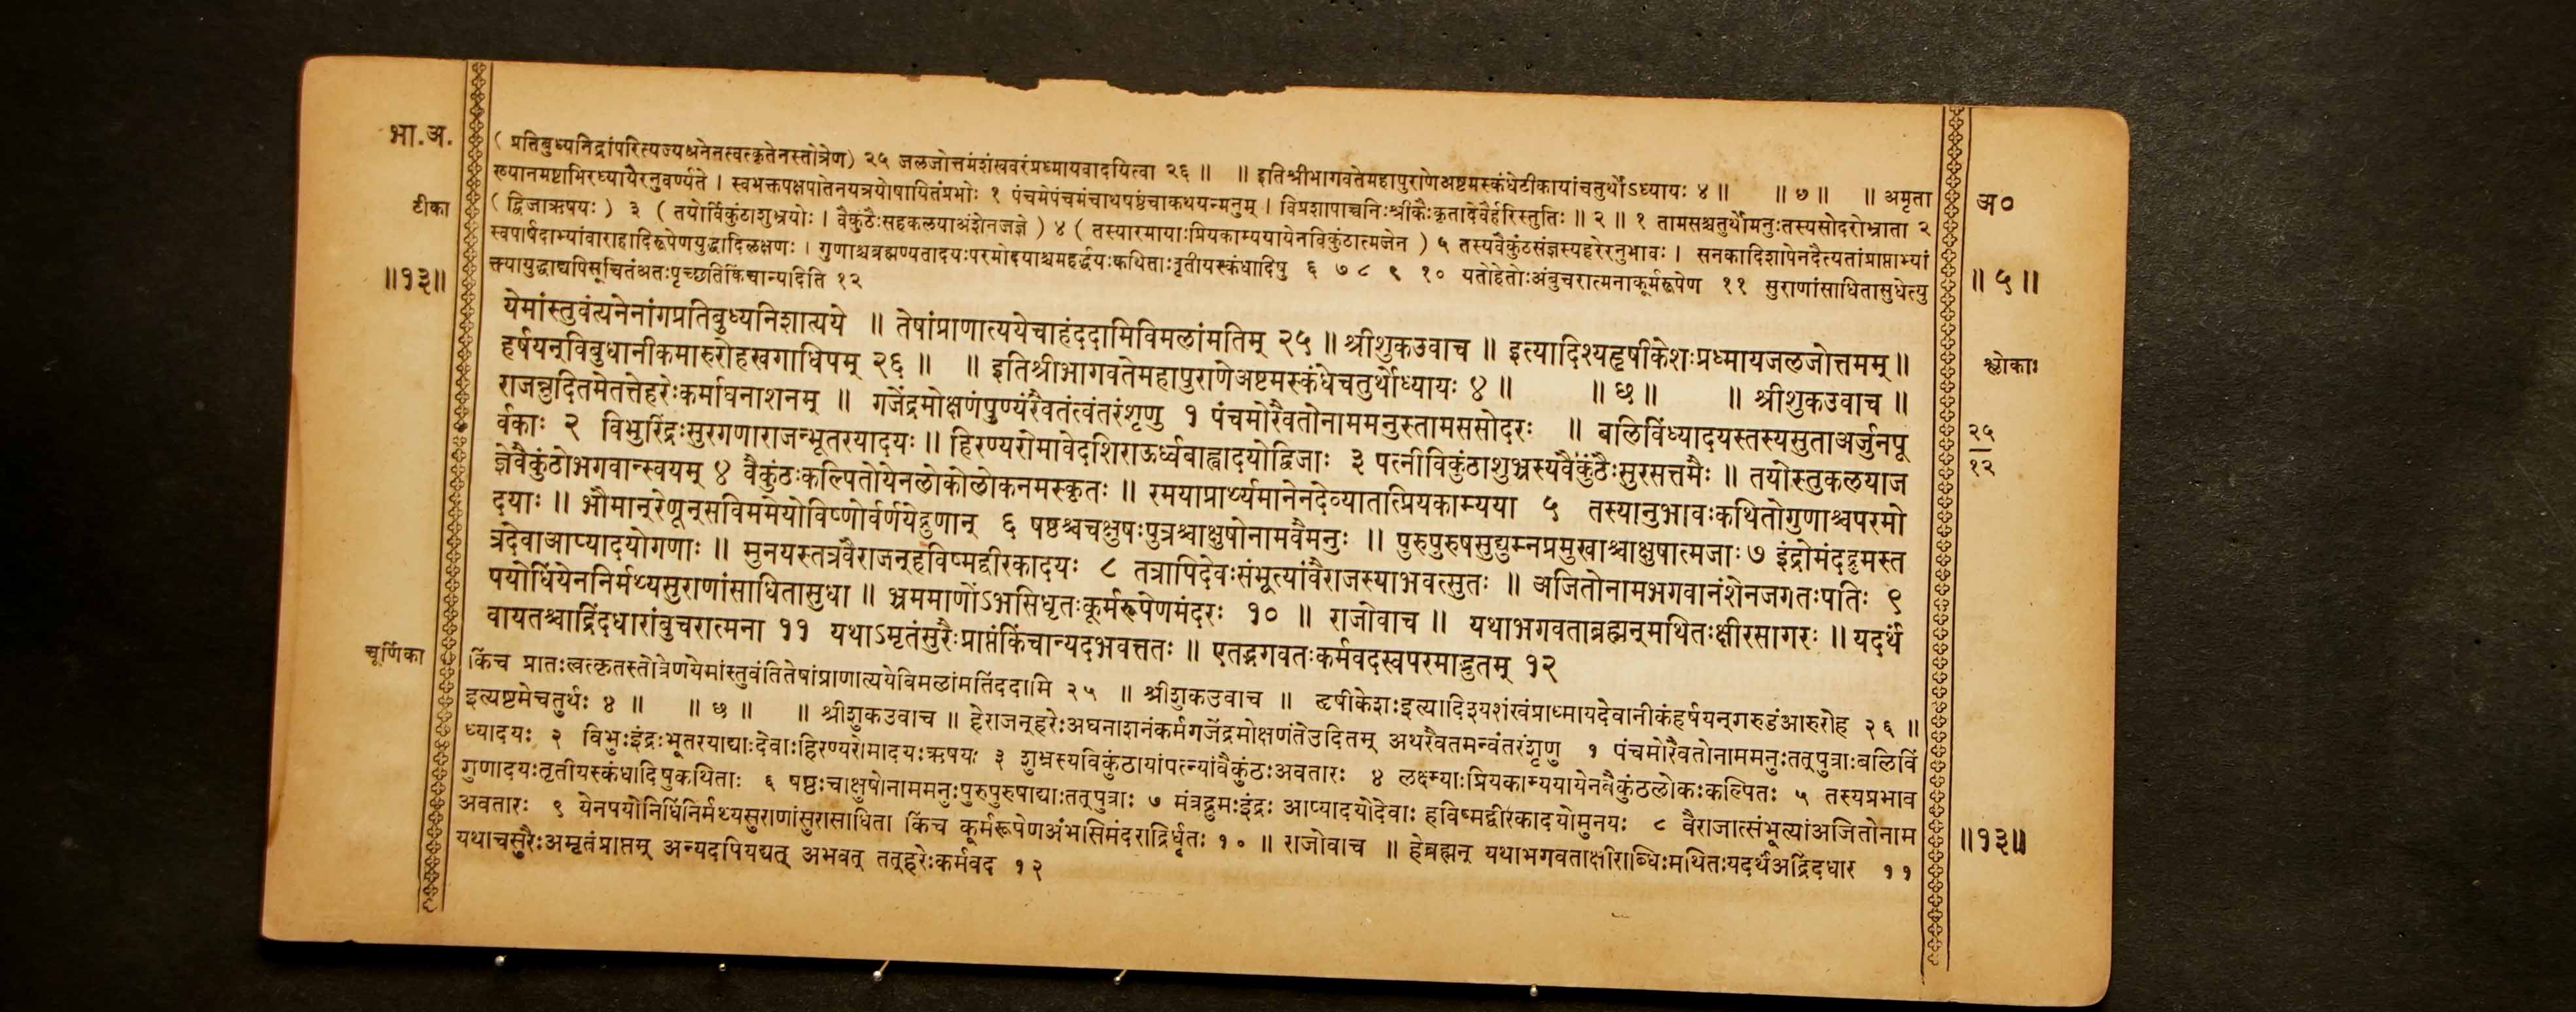 भा.अ.
( प्रतिबुध्यनिद्रांपरित्यज्यअनेनत्वत्कृतेनस्तोत्रेण) २५ जलजोत्तमंशंखवरंप्रध्मायवादयित्वा २६ ॥ ॥ इतिश्रीभागवतेमहापुराणेअष्टमस्कंधेटीकायांचतुर्थोऽध्यायः ४ ॥ ॥ ७ ॥ ॥ अमृता
ख्यानमष्टाभिरध्यायैरनुवर्ण्यते । स्वभक्तपक्षपातेनयत्रयोषायितंप्रभोः १ पंचमेपंचमंचाथषष्ठंचाकथयन्मनुम् । विप्रशापाच्चनिःश्रीकैःकृतादेवैर्हरिस्तुतिः ॥ २ ॥ १ तामसश्चतुर्थोमनुःतस्यसोदरोभ्राता २
टीका
अ०
( द्विजाऋषयः ) ३ ( तयोर्विकुंठाशुभ्रयोः । वैकुंठैःसहकलयाअंशेनजज्ञे ) ४ ( तस्यारमायाःप्रियकाम्ययायेनविकुंठात्मजेन ) ५ तस्यवैकुंठसंज्ञस्यहरेरनुभावः । सनकादिशापेनदैत्यतांप्राप्ताभ्यां
स्वपार्षदाभ्यांवाराहादिरूपेणयुद्धादिलक्षणः । गुणाश्चब्रह्मण्यतादयःपरमोदयाश्चमहर्द्धयःकथिताःतृतीयस्कंधादिषु ६ ७ ८ ९ १० यतोहेतोःअंबुचरात्मनाकूर्मरूपेण ११ सुराणांसाधितासुधेत्यु
॥१३॥
॥ ५ ॥
क्त्यायुद्धाद्यपिसूचितंअतःपृच्छतिकिंचान्यदिति १२
येमांस्तुवंत्यनेनांगप्रतिबुध्यनिशात्यये ॥ तेषांप्राणात्ययेचाहंददामिविमलांमतिम् २५ ॥ श्रीशुकउवाच ॥ इत्यादिश्यहृषीकेशःप्रध्मायजलजोत्तमम् ॥
हर्षयन्विबुधानीकमारुरोहखगाधिपम् २६ ॥ ॥ इतिश्रीभागवतेमहापुराणेअष्टमस्कंधेचतुर्थोध्यायः ४ ॥ ॥ छ ॥ ॥ श्रीशुकउवाच ॥
श्लोकाः
राजन्नुदितमेतत्तेहरेःकर्माघनाशनम् ॥ गजेंद्रमोक्षणंपुण्यंरैवतंत्वंतरंशृणु १ पंचमोरैवतोनाममनुस्तामससोदरः ॥ बलिविंध्यादयस्तस्यसुताअर्जुनपू
२५
१२
र्वकाः २ विभुरिंद्रःसुरगणाराजन्भूतरयादयः ॥ हिरण्यरोमावेदशिराऊर्ध्वबाह्वादयोद्विजाः ३ पत्नीविकुंठाशुभ्रस्यवैकुंठैःसुरसत्तमैः ॥ तयोस्तुकलयाज
ज्ञेवैकुंठोभगवान्स्वयम् ४ वैकुंठःकल्पितोयेनलोकोलोकनमस्कृतः ॥ रमयाप्रार्थ्यमानेनदेव्यातत्प्रियकाम्यया ५ तस्यानुभावःकथितोगुणाश्चपरमो
दयाः ॥ भौमान्रेणून्सविममेयोविष्णोर्वर्णयेद्गुणान् ६ षष्ठश्चचक्षुषःपुत्रश्चाक्षुषोनामवैमनुः ॥ पुरुपुरुषसुद्युम्नप्रमुखाश्चाक्षुषात्मजाः ७ इंद्रोमंदद्रुमस्त
त्रदेवाआप्यादयोगणाः ॥ मुनयस्तत्रवैराजन्हविष्मद्वीरकादयः ८ तत्रापिदेवःसंभूत्यांवैराजस्याभवत्सुतः ॥ अजितोनामभगवानंशेनजगतःपतिः ९
पयोधिंयेननिर्मथ्यसुराणांसाधितासुधा ॥ भ्रममाणोंऽभसिधृतःकूर्मरूपेणमंदरः १० ॥ राजोवाच ॥ यथाभगवताब्रह्मन्मथितःक्षीरसागरः ॥ यदर्थं
वायतश्चाद्रिंदधारांबुचरात्मना ११ यथाऽमृतंसुरैःप्राप्तंकिंचान्यदभवत्ततः ॥ एतद्भगवतःकर्मवदस्वपरमाद्भुतम् १२
चूर्णिका
किंच प्रातःत्वत्कृतस्तोत्रेणयेमांस्तुवंतितेषांप्राणात्ययेविमलांमतिंददामि २५ ॥ श्रीशुकउवाच ॥ हृषीकेशःइत्यादिश्यशंखंप्राध्मायदेवानीकंहर्षयन्गरुडंआरुरोह २६ ॥
इत्यष्टमेचतुर्थः ४ ॥ ॥ छ ॥ ॥ श्रीशुकउवाच ॥ हेराजन्हरेःअघनाशनंकर्मगजेंद्रमोक्षणंतेउदितम् अथरैवतमन्वंतरंशृणु १ पंचमोरैवतोनाममनुःतत्पुत्राःबलिविं
ध्यादयः २ विभुःइंद्रःभूतरयाद्याःदेवाःहिरण्यरोमादयःऋषयः ३ शुभ्रस्यविकुंठायांपत्न्यांवैकुंठःअवतारः ४ लक्ष्म्याःप्रियकाम्ययायेनवैकुंठलोकःकल्पितः ५ तस्यप्रभाव
गुणादयःतृतीयस्कंधादिषुकथिताः ६ षष्ठःचाक्षुषोनाममनुःपुरुपुरुषाद्याःतत्पुत्राः ७ मंत्रद्रुमःइंद्रः आप्यादयोदेवाः हविष्मद्वीरकादयोमुनयः ८ वैराजात्संभूत्यांअजितोनाम
अवतारः ९ येनपयोनिधिंनिर्मथ्यसुराणांसुरासाधिता किंच कूर्मरूपेणअंभसिमंदराद्रिर्धृतः १० ॥ राजोवाच ॥ हेब्रह्मन् यथाभगवताक्षीराब्धिःमथितःयदर्थंअद्रिंदधार ११
॥१३॥
यथाचसुरैःअमृतंप्राप्तम् अन्यदपियद्यत् अभवत् तत्हरेःकर्मवद १२